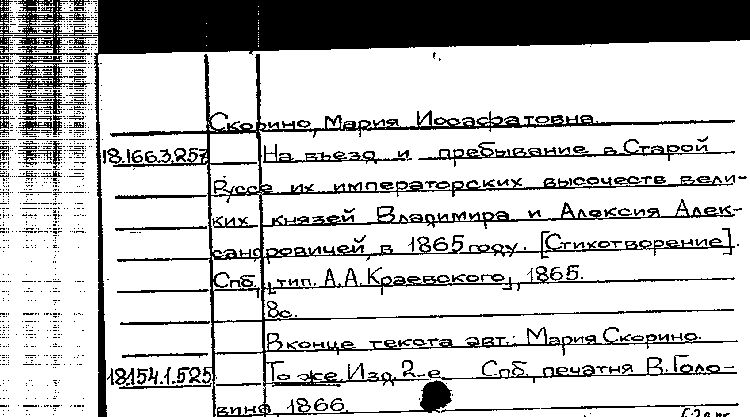 Скорино, Мария Иосафатовна.
18.166.3.257 На въезд и пребывание в Старой
Руссе их императорских высочеств вели-
ких князей Владимира и Алексия Алек-
сандровичей, в 1865 году. [Стихотворение].
Спб, [тип. А.А. Краевского], 1865.
8с.
В конце текста авт.: Мария Скорино.
18.154.1.525 То же. Изд. 2-е. Спб, печатня В. Голо-
вина, 1866.